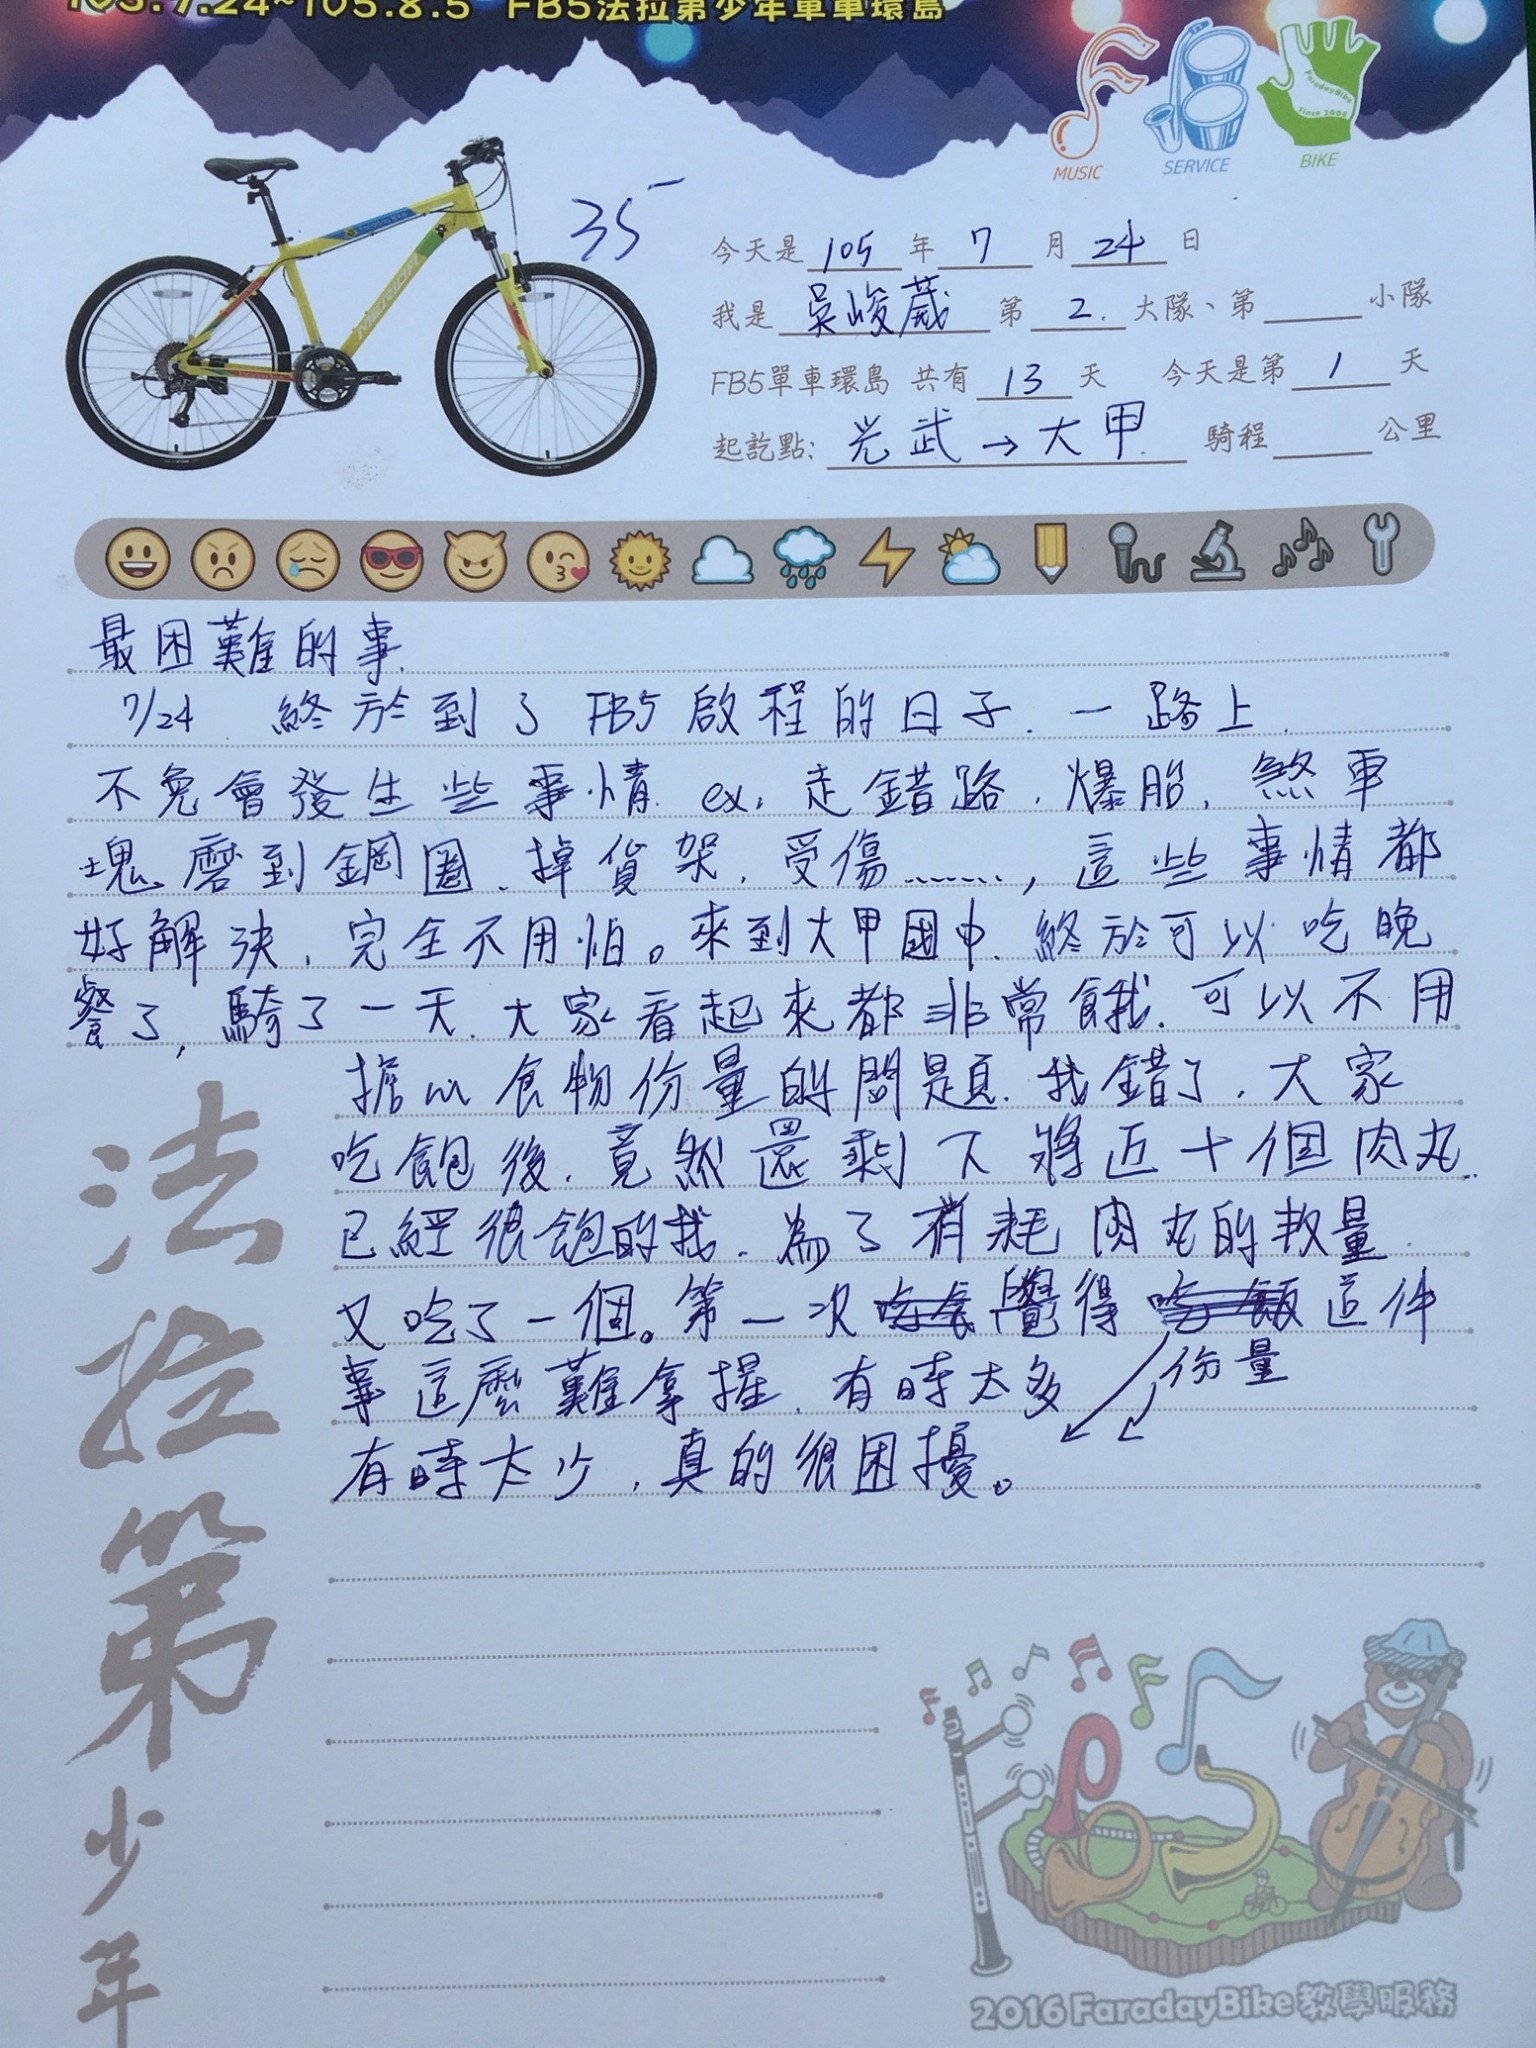 105.7.24~105.8.5 FB5法拉第少年單車環島
MUSIC SERVICE BIKE
FaradayBike
Since 2002
MERIDA
35
今天是 105 年 7 月 24 日
我是 吳峻葳 第 2. 大隊、第 小隊
FB5單車環島 共有 13 天 今天是第 1 天
起訖點: 光武→大甲 騎程 公里
最困難的事.
7/24 終於到了FB5啟程的日子.一路上
不免會發生些事情. ex. 走錯路,爆胎,煞車
塊磨到鋼圈、掉貨架,受傷........,這些事情都
好解決,完全不用怕。來到大甲國中,終於可以吃晚
餐了,騎了一天.大家看起來都非常餓.可以不用
擔心食物份量的問題.我錯了,大家
吃飽後.竟然還剩下將近十個肉丸.
已經很飽的我.為了消耗肉丸的數量
又吃了一個。第一次 覺得 這件
事這麼難拿握.有時太多 份量
有時太少,真的很困擾。
法拉第少年
2016 FaradayBike教學服務